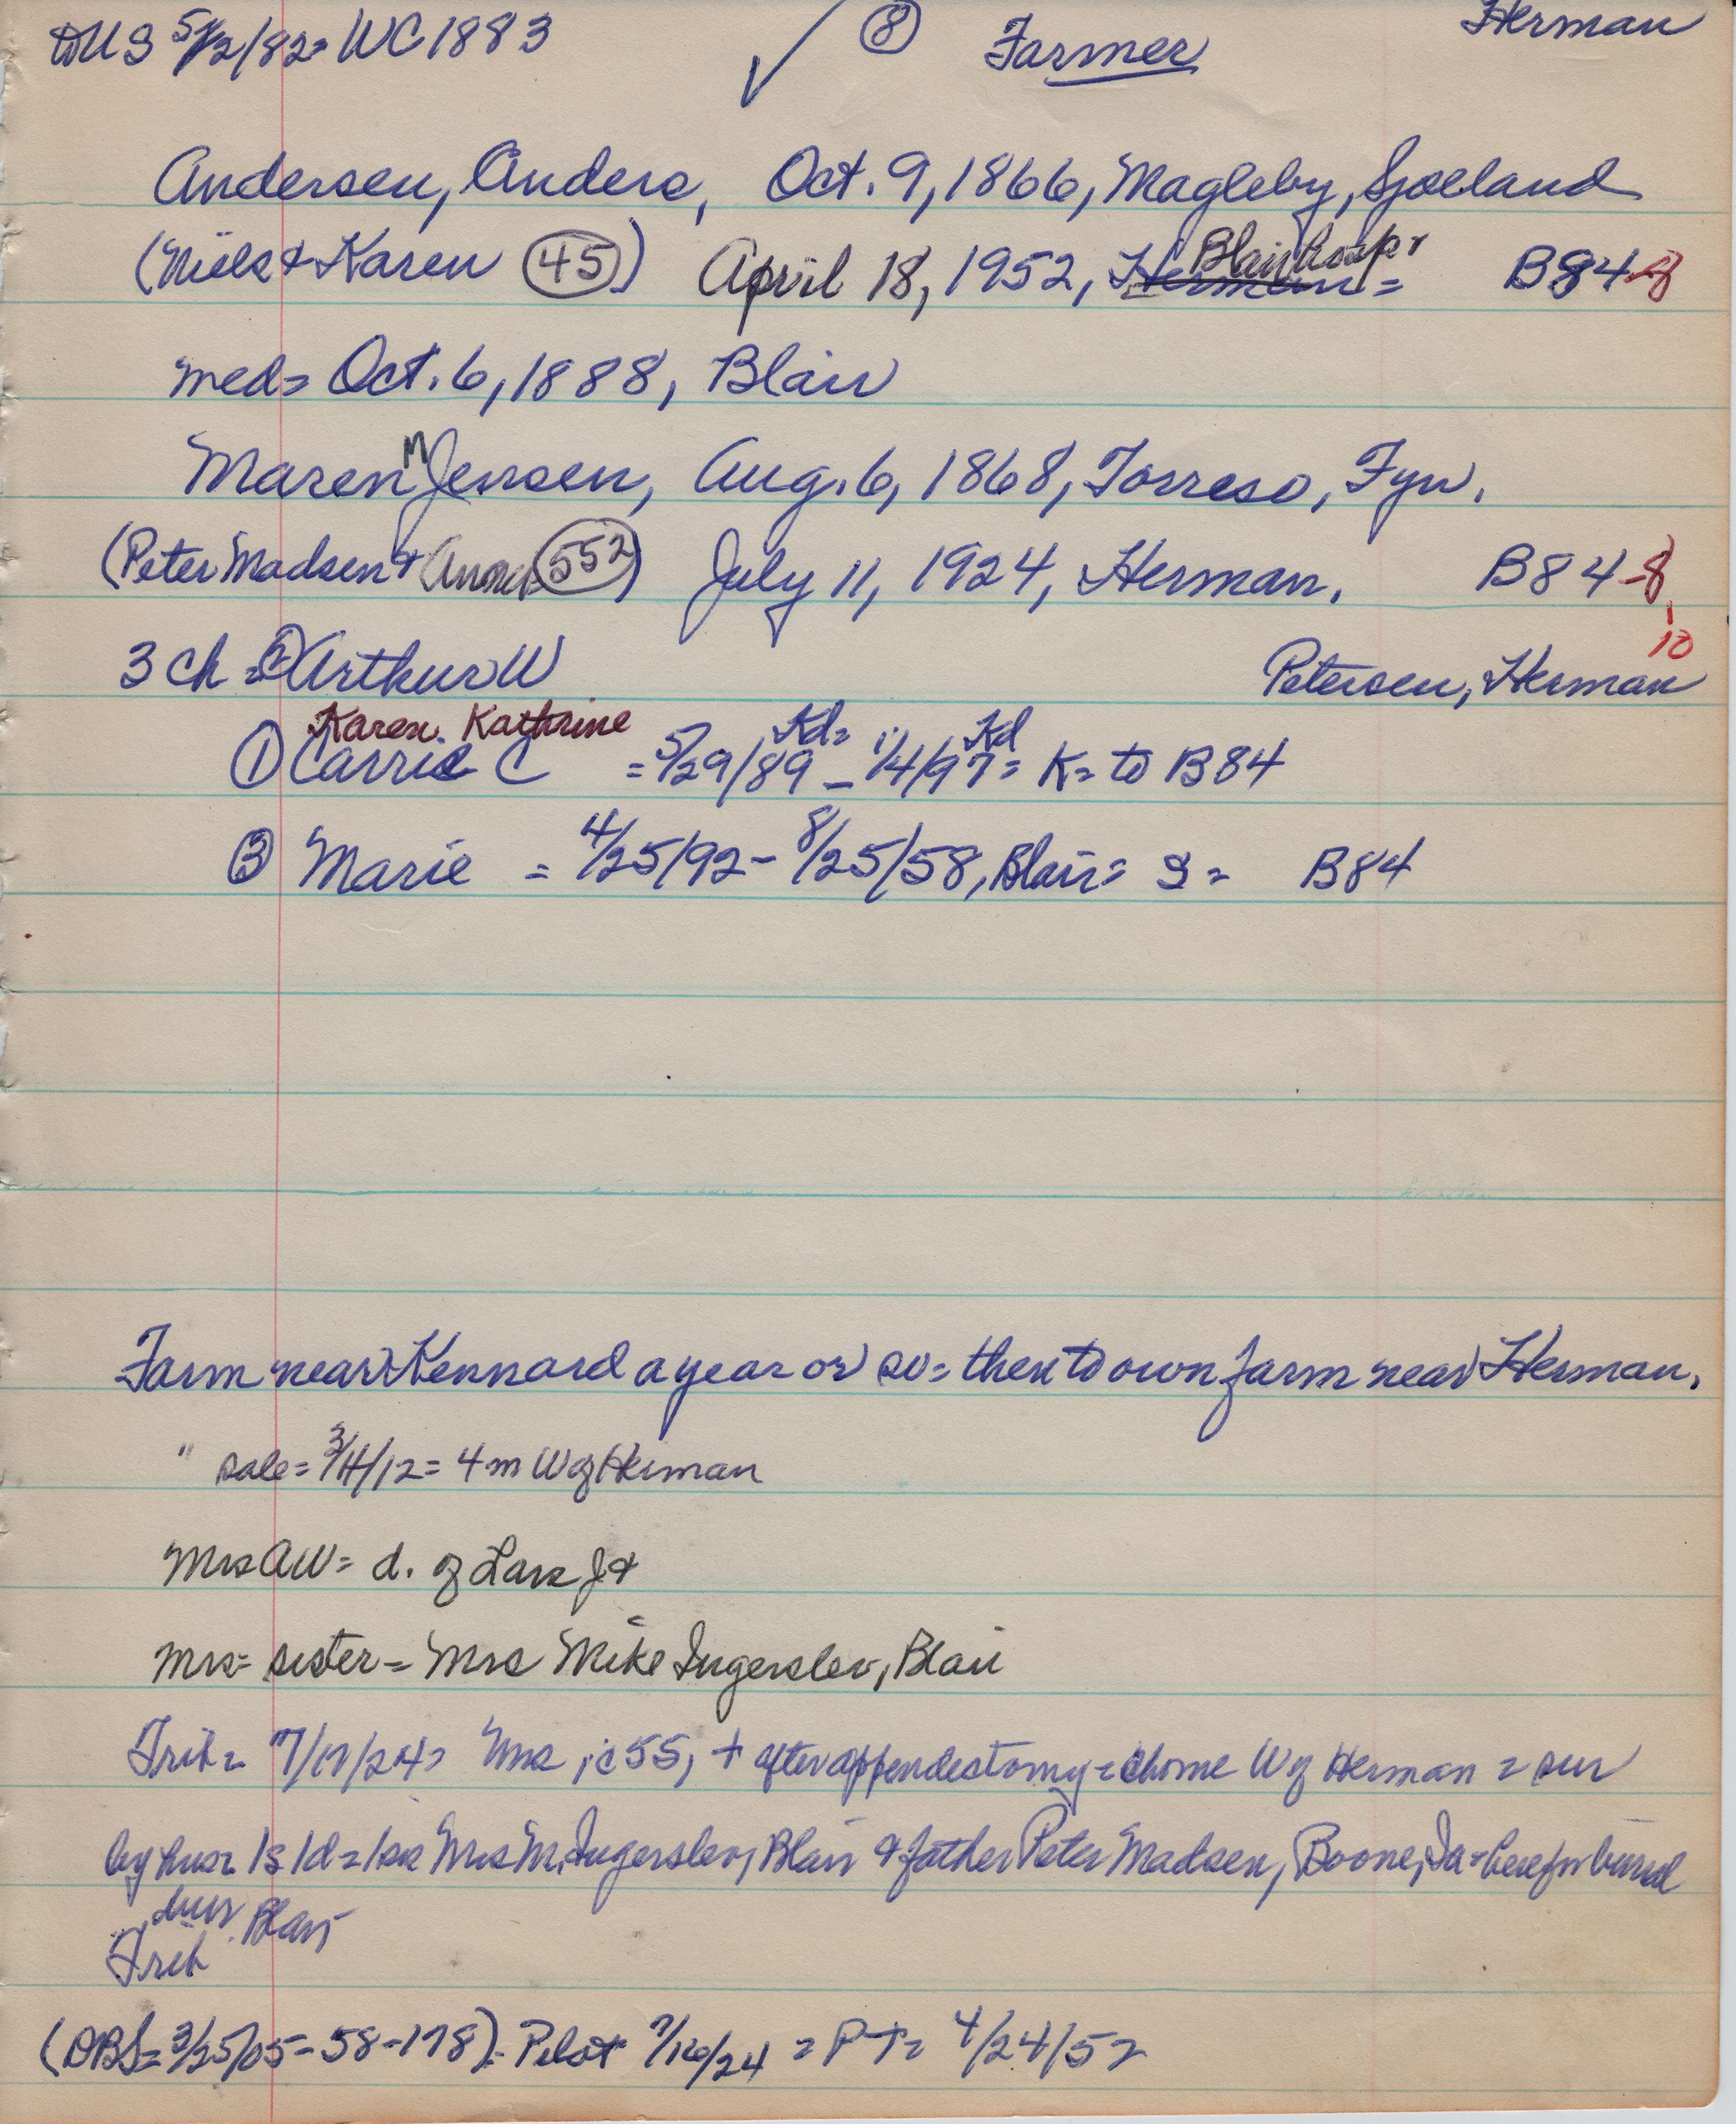 to US 5/2/82= WC 1883 ✓ ⑧ Farmer Herman
Andersen, Anders, Oct. 9, 1866, Magleby, Sjoelland
(Niels & Karen (45)) April 18, 1952, Herman= Blair hosp. B84-8
med= Oct. 6, 1888, Blair
Maren M Jensen, Aug. 6, 1868, Torreso, Fyn.
(Peter Madsen & (552)) July 11, 1924, Herman. B84-8, 10
3 ch = ② Arthur W Petersen, Herman
Karen Kathrine Kd= Kd
① Carrie C = 5/29/89 - 1/4/97= K= to B84
③ Marie = 4/25/92 - 8/25/58, Blair= S= B84
Farm near Kennard a year or so= then to own farm near Herman.
" sale= 3/4/12= 4 m W of Herman
Mrs AW= d. of Lars J &
Mrs= sister= Mrs Mike Ingerslev, Blair
Trib= 7/17/24= Mrs, 55, + after appendestomy= home W of Herman = sur
by hus= 1s 1d= 1sis Mrs M. Ingerslev, Blair & father Peter Madsen, Boone, Ia= here for burial
Blair
Trib
(DBS= 3/25/05-58-178). Pilot 7/16/24 = PT= 4/24/52